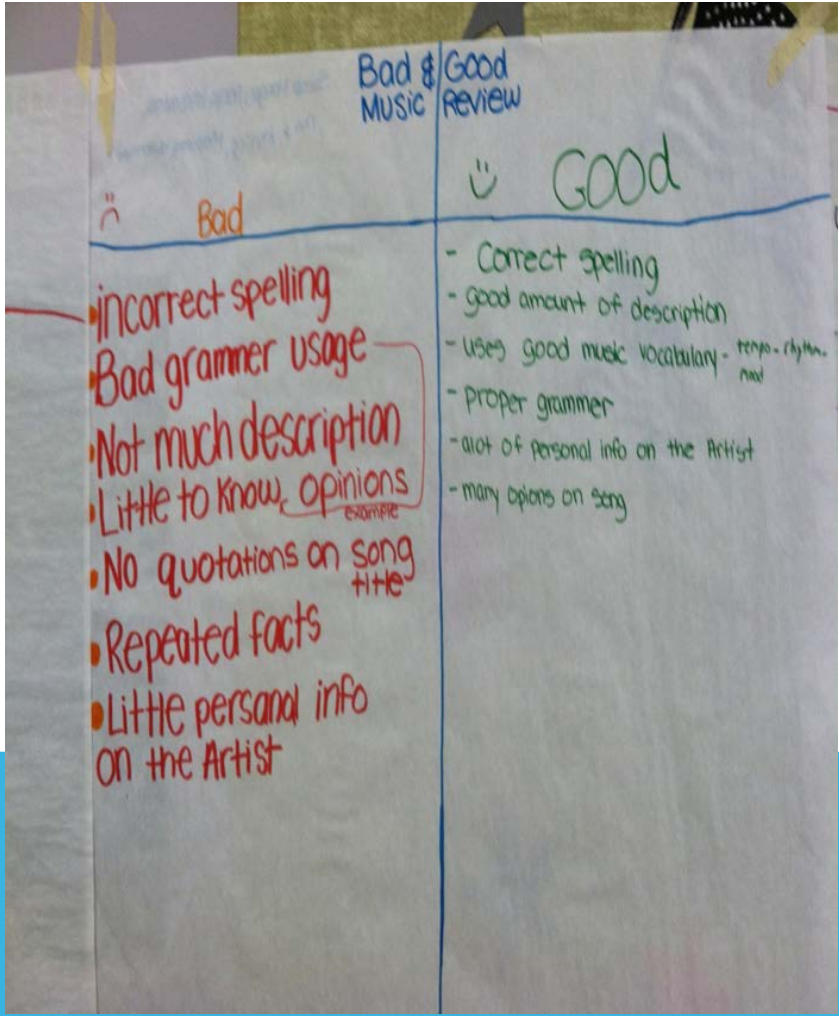 Bad & Good
MUSIC REVIEW
Bad
incorrect spelling
Bad grammer usage
Not much description
Little to know opinions
example
No quotations on song
title
Repeated facts
Little persanal info
on the Artist
GOOD
- Correct spelling
- good amount of description
- uses good music vocabulary - tempo - rhythm -
mood
- proper grammer
- alot of personal info on the Artist
- many opions on song